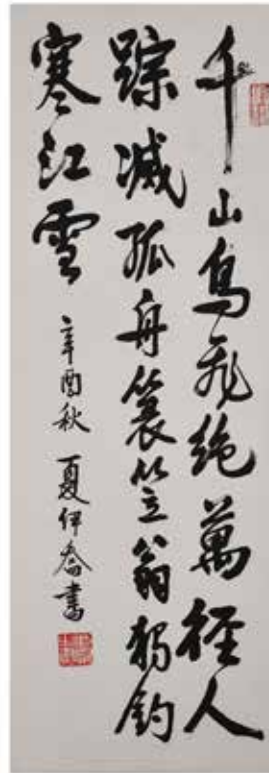 千山鸟飛绝萬径人
踪滅孤舟簑笠翁獨钓
寒江雪
辛酉秋 夏伊喬書